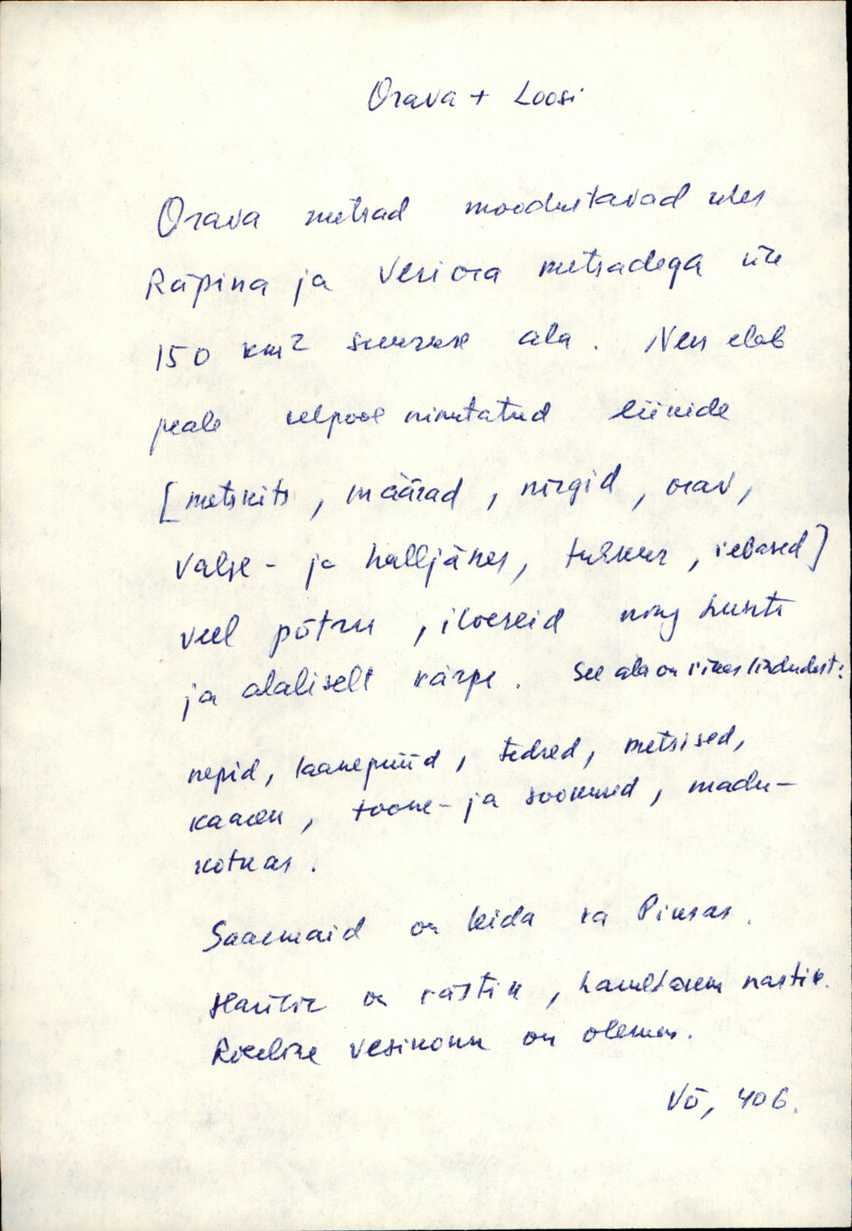 Orava + Loosi
Orava metsad moodustavad ühes
Räpina ja Veriora metsadega üle
150 km² suuruse ala. Neis elab
peale ülpool nimetatud liikide
[metskits, määrad, nirgid, orav,
valge- ja halljänes, tuhkur, rebased]
veel põtru, ilveseid ning hunte
ja alaliselt kärpe. See ala on rikas lindudest:
nepid, laanepüüd, tedred, metsised,
kaaren, toone- ja sookured, madu-
kotkas.
Saarmaid on leida ka Piusas.
Harilik on rästik, haruldasem nastik.
Roheline vesikonn on olemas.
Võ, 406.